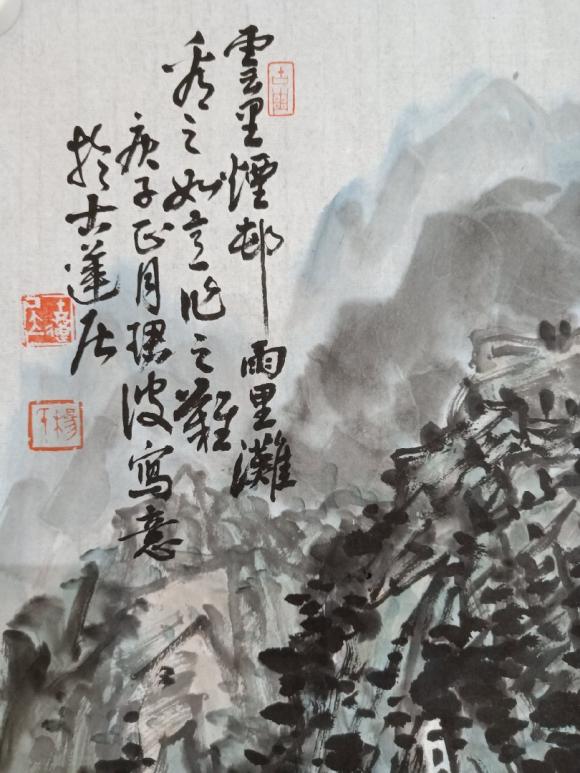 雲里煙邨雨里灘
看之如意作之難
庚子正月珺波寫意
於古蓮居